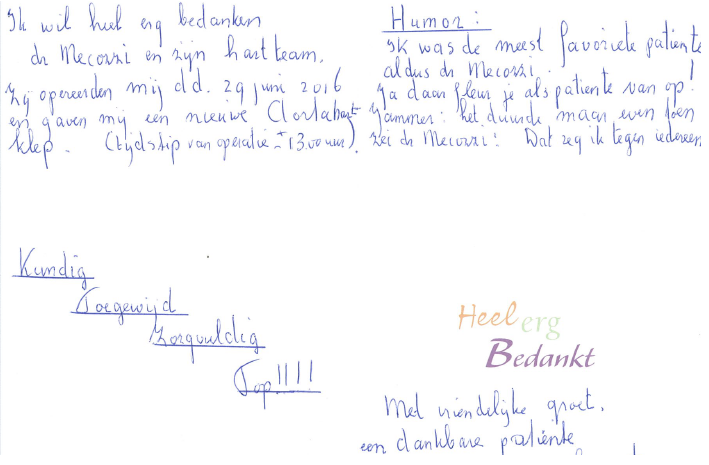 Ik wil heel erg bedanken
dr Mecozzi en zijn hartteam.
Zij opereerden mij d.d. 29 juni 2016
en gaven mij een nieuwe hart
klep. (tijdstip van operatie = ± 13.00 uur).
Humor:
Ik was de meest favoriete patiënte
aldus dr Mecozzi.
Ja daar fleur je als patiente van op!
Jammer: het duurde maar even toen
zei dr Mecozzi: Dat zeg ik tegen iedereen
Kundig
Toegewijd
Zorgvuldig
Top!!!!
Heel erg
Bedankt
Met vriendelijke groet,
een dankbare patiënte